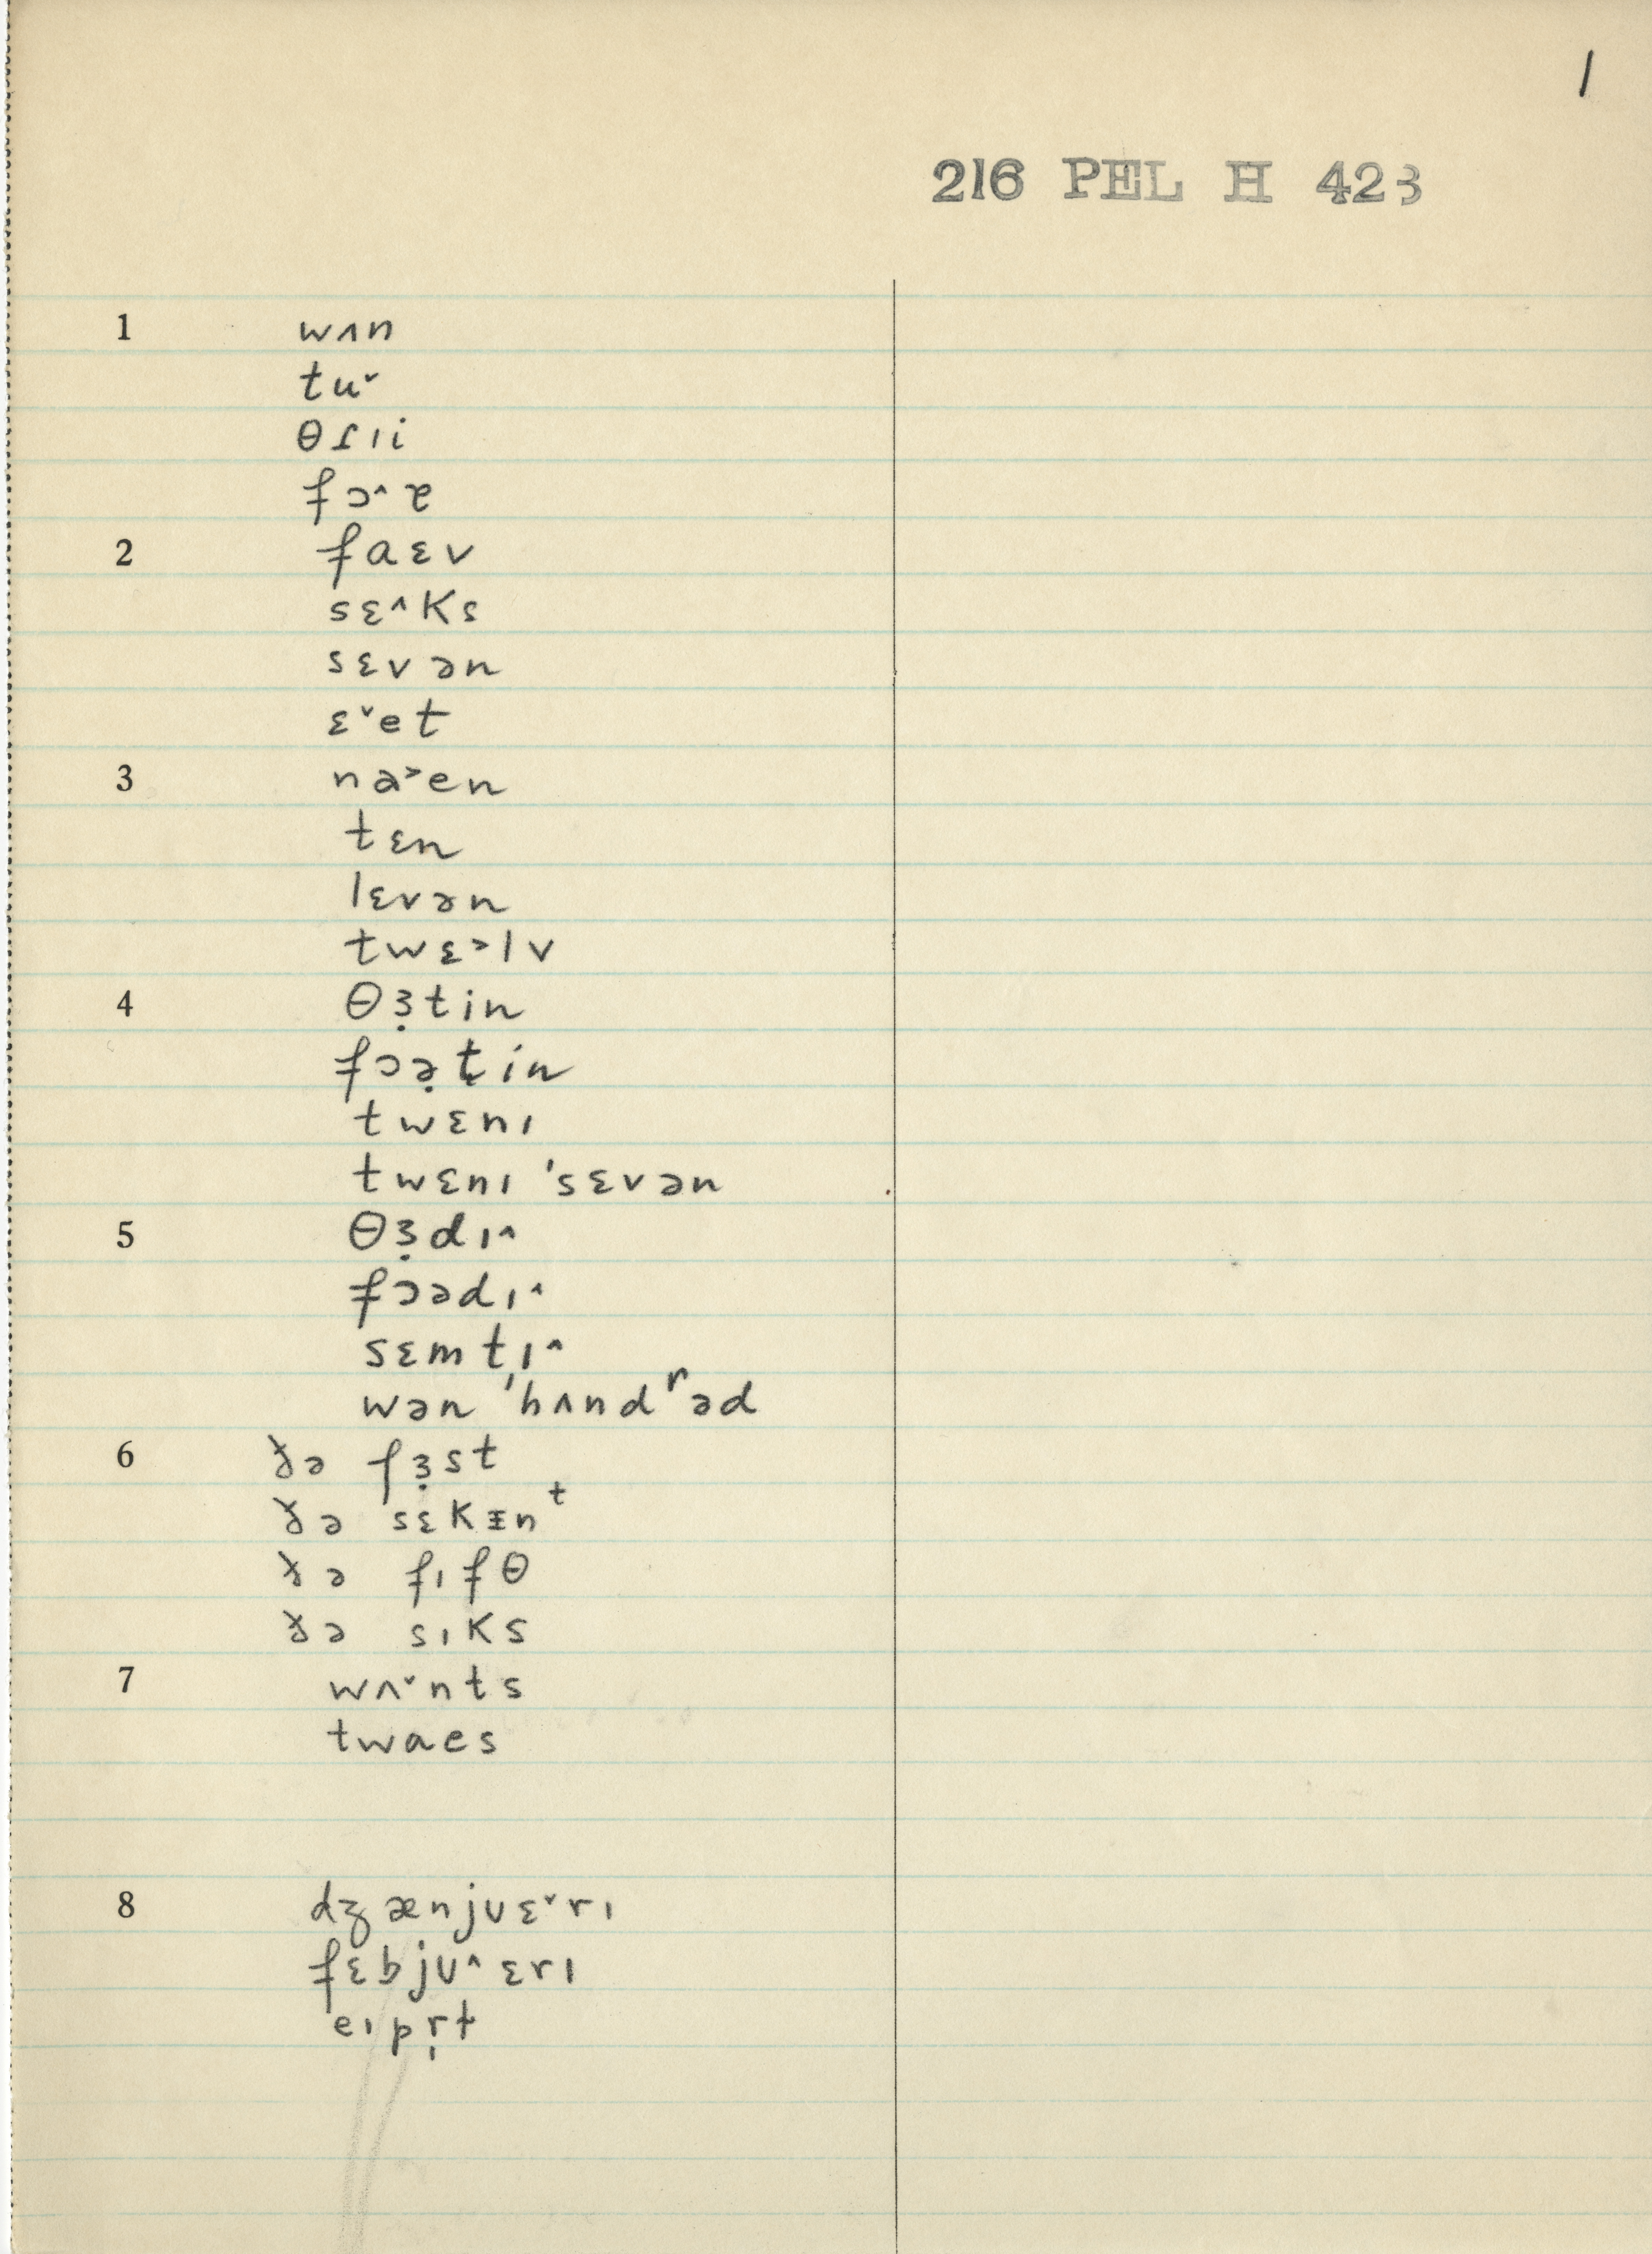 1
216 PEL H 423
1 wʌn
tu˅
θɾɪi
fɔ˄ɐ
2 faɛv
sɛ˄ks
sɛvən
ɛ˅et
3 na˃en
tɛn
lɛvən
twɛ˃lv
4 θɜ̣tin
fɔə̣t̬in
twɛnɪ
twɛnɪ 'sɛvən
5 θɜ̣dɪ˄
fɔədɪ˄
sɛmtɪ˄
wən 'hʌndʳəd
6 ðə fɜ̣st
ðə sɛkɪ̵nᵗ
ðə fɪfθ
ðə sɪks
7 wʌ˅nts
twaes
8 dʒænjʊɛ˅rɪ
fɛbjʊ˄ɛrɪ
eɪpr̩ɫ